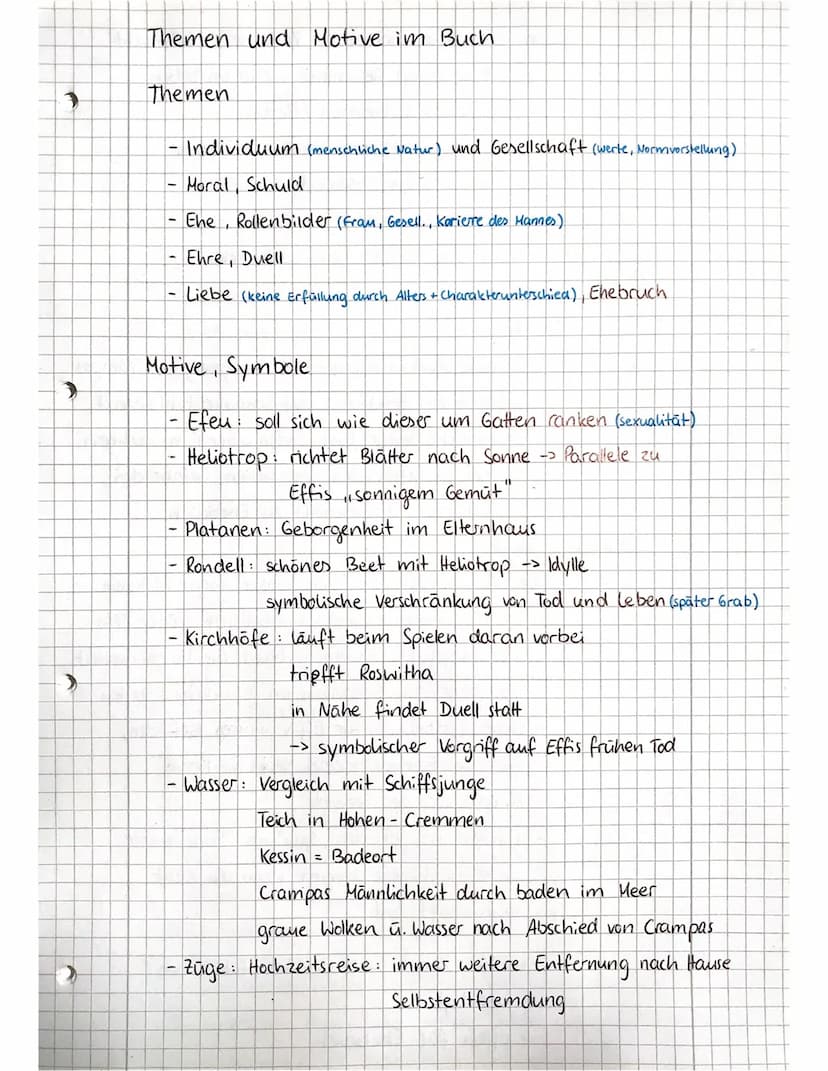 Themen und Motive im Buch
Themen
- Individuum (menschliche Natur) und Gesellschaft (Werte, Normvorstellung)
- Moral, Schuld
- Ehe, Rollenbilder (Frau, Gesell., Karierre des Mannes)
- Ehre, Duell
- Liebe (keine Erfüllung durch Alters + Charakterunterschied), Ehebruch
Motive, Symbole
- Efeu: soll sich wie dieser um Gatten ranken (Sexualität)
- Heliotrop: richtet Blätter nach Sonne -> Parallele zu
Effis „sonnigem Gemüt"
- Platanen: Geborgenheit im Elternhaus
- Rondell: schönes Beet mit Heliotrop -> Idylle
symbolische Verschränkung von Tod und Leben (später Grab)
- Kirchhöfe: läuft beim Spielen daran vorbei
trifft Roswitha
in Nähe findet Duell statt
-> symbolischer Vorgriff auf Effis frühen Tod
- Wasser: Vergleich mit Schiffsjunge
Teich in Hohen-Cremmen
Kessin = Badeort
Crampas Männlichkeit durch baden im Meer
graue Wolken ü. Wasser nach Abschied von Crampas
- Züge: Hochzeitsreise: immer weitere Entfernung nach Hause
Selbstentfremdung